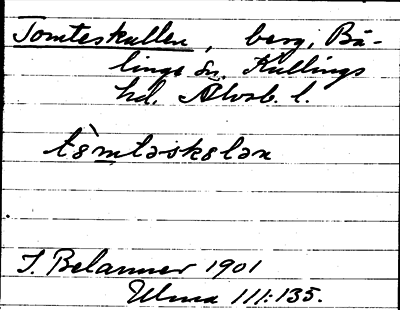 Tomteskullen, berg, Bä-
linge sn. Kullings
hd. Älvsb. l.
tòmtəskələn
I. Belanner 1901
Ulma 111:135.